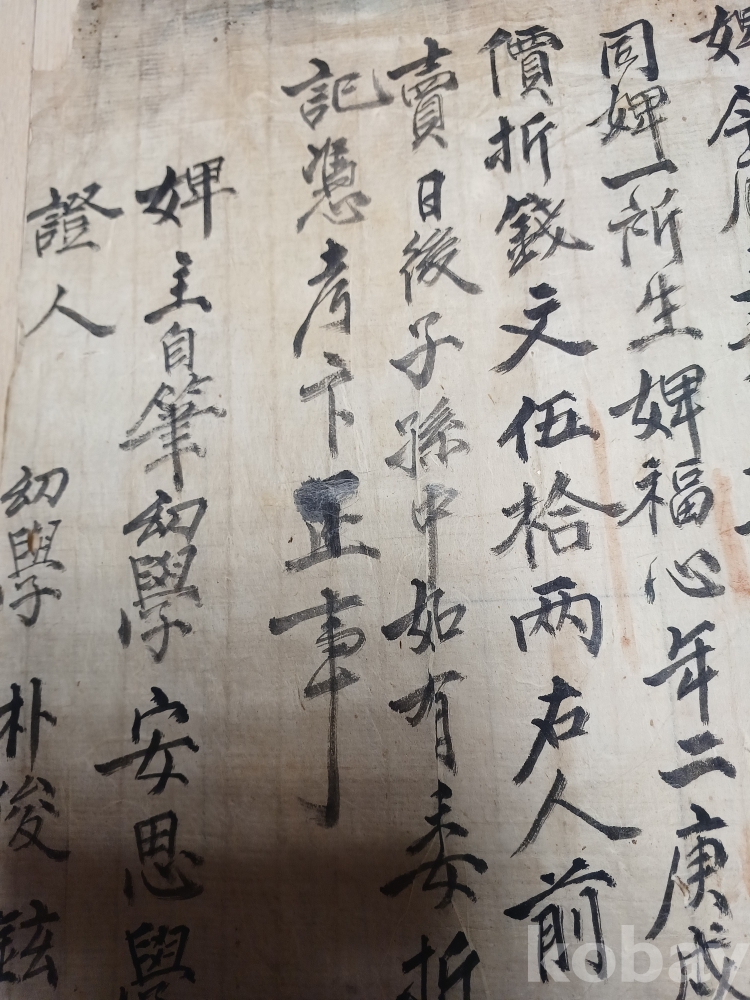 婢今
同婢一所生婢福心年二庚戌
價折錢文伍拾两右人前
賣日後子孫中如有委折
記憑考卞正事
婢主自筆幼學安思學
證人 幼學 朴俊鉉
kobay